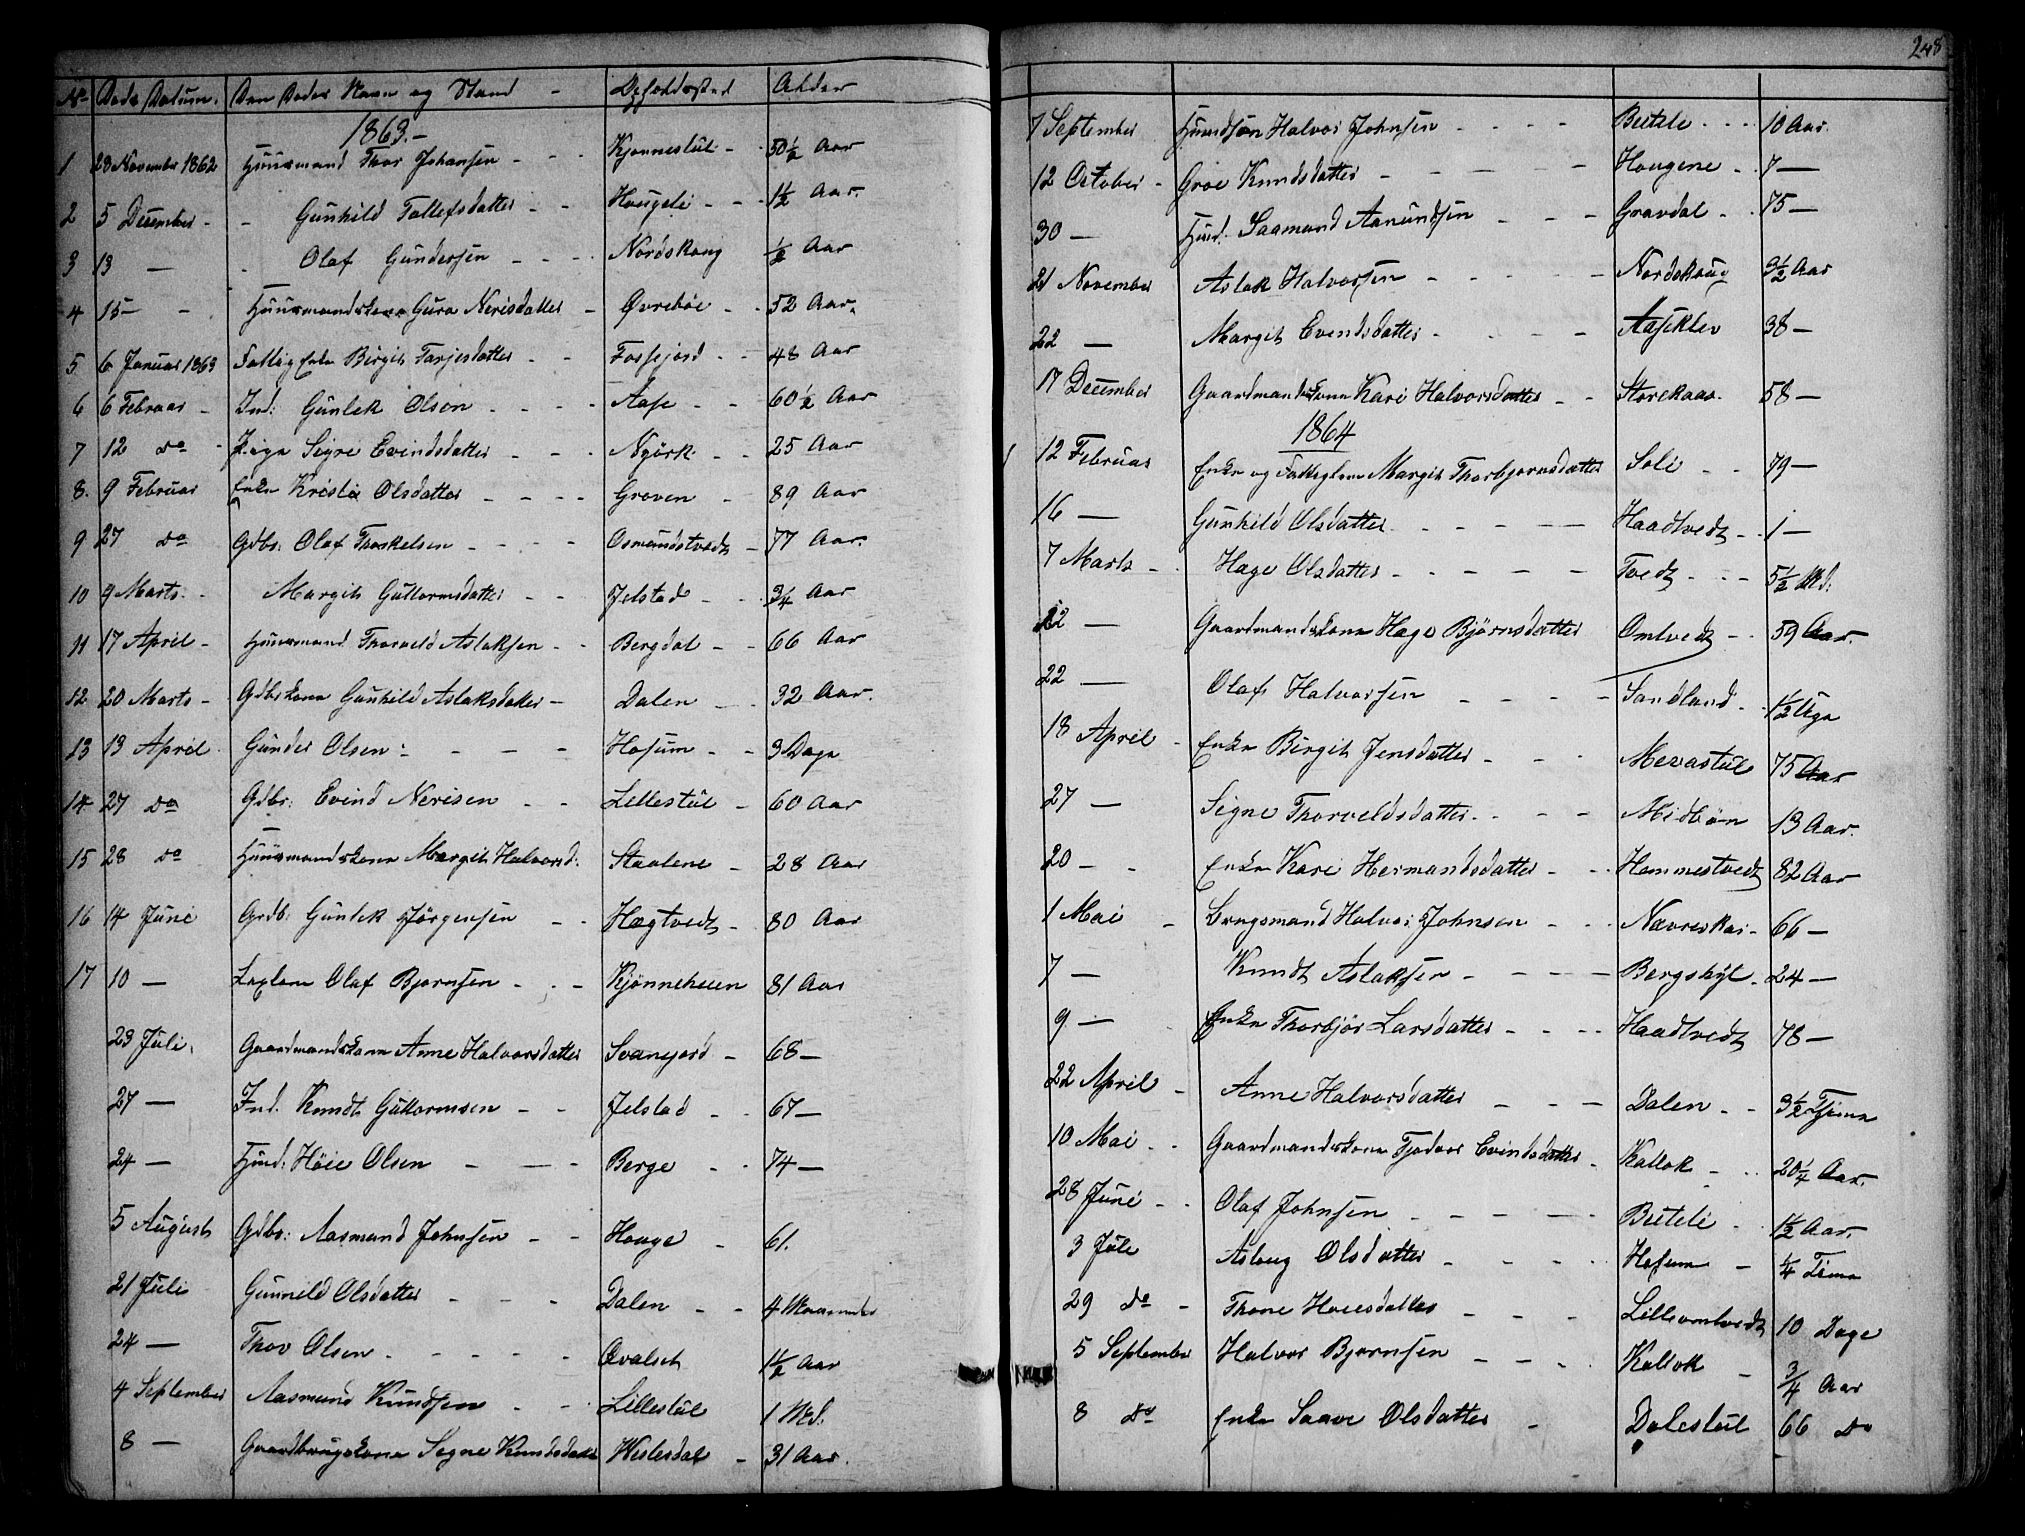 No Døds Datum. Den Dødes Navn og Stand - Opholdssted Alder
1863.-
1 28 November 1862 Huusmand Thor Johansen - - - Kjønnestül - - 50½ Aar
2 5 December - - Gunhild Tollefsdatter - - Hougeli - - - 1½ Aar.
3 13 — - Olaf Gundersen - - - - Nordskoug ½ Aar
4 15 - - Huusmandskone Guro Nerisdatter - Øvrebøe - - 52 Aar.
5 6 Januar 1863 Fattig Enke Birgit Tarjesdatter - - Fossejord - - 48 Aar
6 6 Februar - Ind: Gunlek Olsen - - - - Aase - - 60½ Aar
7 12 do - Pige Sigri Evindsdatter - - - Nyørk - - 25 Aar
8. 9 Februar Enke Kristie Olsdatter - - - - Groven - 89 Aar
9 27 do Gdbr: Olaf Thorkelsen - - - - Osmundstvedt - 77 Aar.
10 9 Marts - - Margit Guttormsdatter - - Jelstad - - 3/4 Aar
11 17 April - Huusmand Thorveld Aslaksen - - Bergdal - - 66 Aar
12 20 Marts - Gdbrkone Gunhild Aslaksdatter - Dalen - - 32 Aar.
13 13 April Gunder Olsen - - - - Hofum - - 3 Dage
14 27 do Gdbr: Evind Nerisen - - Lillestül - 60 Aar
15 28 do Huusmandskone Margit Halvorsd: Staalene - 28 Aar
16 14 Juni Grdb: Gunlek Jørgensen - - Hægtvedt - 80 Aar
17 10 — Lægslem Olaf Bjørnsen - - - Kjønneheien 81 Aar
23 Juli. Gaardmandskone Anne Halvorsdatter Svanejord - 68 —
27 — Ind. Knudt Guttormsen - - Jelstad - - 67 —
24 — Huud: Høie Olsen - — - Berge - - 74 —
5 August Gdbr: Aasmund Johnsen - - Houge - 61.
21 Juli Gunnild Olsdatter - - - Dalen - - 4 Maaneder
24 — Thor Olsen - - - - - Qvalset 1½ Aar
4 September Aasmund Knudsen - - Lillestül 1 Md.
8 — Gaardbrugskone Signe Knudsdatter Weslesdal - 31 Aar.
248
7 September Huusmand Halvor Johnsen - - - - Buteli - - - 10 Aar.
12 October - Groe Knudsdatter - - - - - Hougene - - 7 —
30 — Huud. Saamund Aanundsen - - - Gravdal - - 75 —
21 November Aslak Halvorsen - - - - - Nordskoug 9½ Aar
22 — Margit Evendsdatter - - - - Aaseklev 38 —
17 December Gaardmandskone Kari Halvorsdatter - - Storekaas. 58 —
1864
12 Februar Enke og Fattiglem Margit Thorbjørnsdatter Soli - - 79 —
16 — Gunhild Olsdatter - - - — Haadtvedt - - 1 —
7 Marts - Hæge Olsdatter - - - - - Tvedt - - - 5½ Md.
22 — Gaardmandskone Hæge Bjørnsdatter Omtvedt - - 59 Aar.
22 — Olaf Halvorsen - - - - Sandland - 1½ Uge
18 April - Enke Birgit Jensdatter - - - Mevastül 75 Aar
27 — Signe Thorveldsdatter - - - Midbøn 13 Aar.
20 - - Enke Kari Hermandsdatter - - - Hommestvedt 82 Aar
1 Mai - Længsmand Halvor Johnsen - - - Navreskar - 66 —
7 — Knudt Aslaksen - - - — Bergshyl - 24 —
9 — Enke Thorbjør Larsdatter - - - - Haadtvedt 78 —
22 April - Anne Halvorsdatter - - - Dalen - - 3½ Time
10 Mai - - Gaardmandskone Tjodvor Evindsdatter - Kallok - - 20¼ Aar.
28 Juni - - Olaf Johnsen - - - - - Buteli - 1½ Aar.
3 Juli Aslaug Olsdatter - - - - Hofum - ¼ Time
29 do - Thone Hoiesdatter - - - Lilleomtvedt 10 Dage
5 September Halvor Bjørnsen - - - Kallok - 3/4 Aar
8 do Enke Saave Olsdatter - Dalestül 66 do